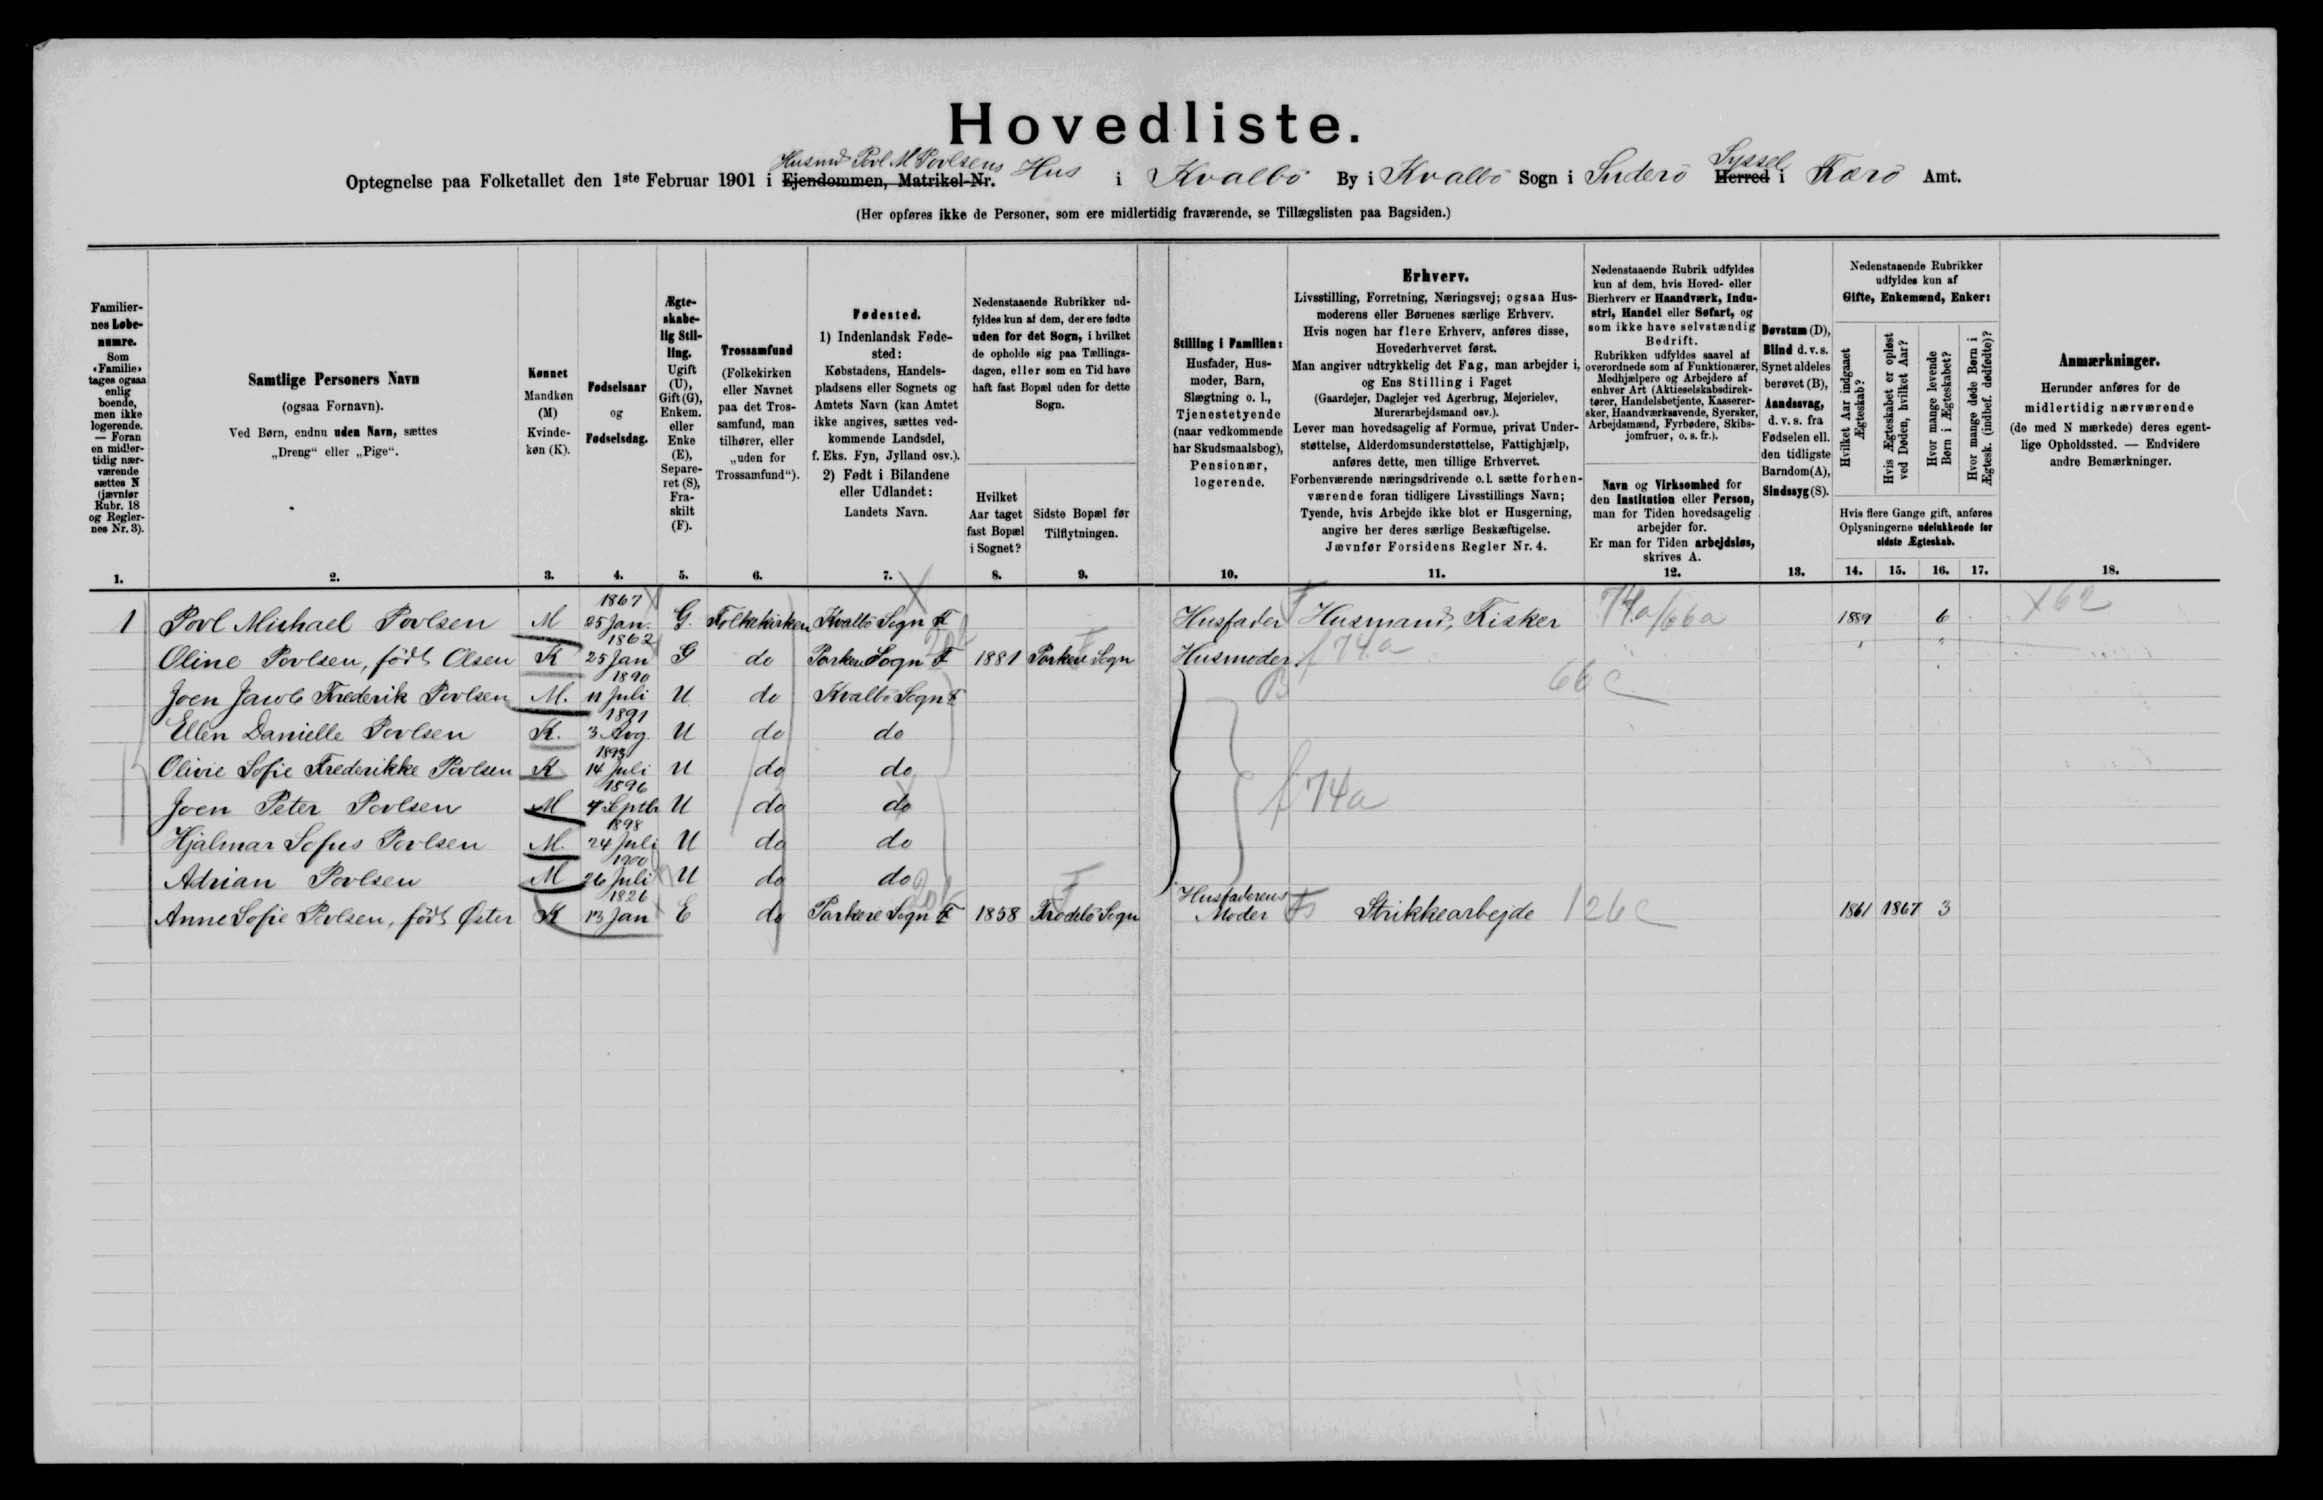 Hovedliste.
Optegnelse paa Folketallet den 1ste Februar 1901 i Ejendommen, Matrikel-Nr. Husmd Povl M Povlsens Hus i Kvalbö By i Kvalbö Sogn i Suderö Herred Syssel i Færö Amt.
(Her opføres ikke de Personer, som ere midlertidig fraværende, se Tillægslisten paa Bagsiden.)
Familiernes Løbenumre. Som «Familie» tages ogsaa enlig boende, men ikke logerende. — Foran en midlertidig nærværende sættes N (jævnfør Rubr. 18 og Reglernes Nr. 3).
Samtlige Personers Navn (ogsaa Fornavn). Ved Børn, endnu uden Navn, sættes „Dreng“ eller „Pige“.
Kønnet Mandkøn (M) Kvindekøn (K).
Fødselsaar og Fødselsdag.
Ægteskabelig Stilling. Ugift (U), Gift (G), Enkem. eller Enke (E), Separeret (S), Fraskilt (F).
Trossamfund (Folkekirken eller Navnet paa det Trossamfund, man tilhører, eller „uden for Trossamfund“).
Fødested. 1) Indenlandsk Fødested: Købstadens, Handelspladsens eller Sognets og Amtets Navn (kan Amtet ikke angives, sættes vedkommende Landsdel, f. Eks. Fyn, Jylland osv.). 2) Født i Bilandene eller Udlandet: Landets Navn.
Nedenstaaende Rubrikker udfyldes kun af dem, der ere fødte uden for det Sogn, i hvilket de opholde sig paa Tællingsdagen, eller som en Tid have haft fast Bopæl uden for dette Sogn.
Hvilket Aar taget fast Bopæl i Sognet?
Sidste Bopæl før Tilflytningen.
Stilling i Familien: Husfader, Husmoder, Barn, Slægtning o. l., Tjenestetyende (naar vedkommende har Skudsmaalsbog), Pensionær, logerende.
Erhverv.
Livsstilling, Forretning, Næringsvej; ogsaa Husmoderens eller Børnenes særlige Erhverv.
Hvis nogen har flere Erhverv, anføres disse, Hovederhvervet først.
Man angiver udtrykkelig det Fag, man arbejder i, og Ens Stilling i Faget (Gaardejer, Daglejer ved Agerbrug, Mejerielev, Murerarbejdsmand osv.).
Lever man hovedsagelig af Formue, privat Understøttelse, Alderdomsunderstøttelse, Fattighjælp, anføres dette, men tillige Erhvervet.
Forhenværende næringsdrivende o. l. sætte forhenværende foran tidligere Livsstillings Navn; Tyende, hvis Arbejde ikke blot er Husgerning, angive her deres særlige Beskæftigelse.
Jævnfør Forsidens Regler Nr. 4.
Nedenstaaende Rubrik udfyldes kun af dem, hvis Hoved- eller Bierhverv er Haandværk, Industri, Handel eller Søfart, og som ikke have selvstændig Bedrift.
Rubrikken udfyldes saavel af overordnede som af Funktionærer, Medhjælpere og Arbejdere af enhver Art (Aktieselskabsdirektører, Handelsbetjente, Kasserersker, Haandværkssvende, Syersker, Arbejdsmænd, Fyrbødere, Skibsjomfruer, o. s. fr.).
Navn og Virksomhed for den Institution eller Person, man for Tiden hovedsagelig arbejder for.
Er man for Tiden arbejdsløs, skrives A.
Døvstum (D), Blind d. v. s. Synet aldeles berøvet (B), Aandssvag, d. v. s. fra Fødselen ell. den tidligste Barndom (A), Sindssyg (S).
Nedenstaaende Rubrikker udfyldes kun af Gifte, Enkemænd, Enker:
Hvilket Aar indgaaet Ægteskab?
Hvis Ægteskabet er opløst ved Døden, hvilket Aar?
Hvor mange levende Børn i Ægteskabet?
Hvor mange døde Børn i Ægtesk. (indbef. dødfødte)?
Hvis flere Gange gift, anføres Oplysningerne udelukkende for sidste Ægteskab.
Anmærkninger. Herunder anføres for de midlertidig nærværende (de med N mærkede) deres egentlige Opholdssted. — Endvidere andre Bemærkninger.
1. 2. 3. 4. 5. 6. 7. 8. 9. 10. 11. 12. 13. 14. 15. 16. 17. 18.
1 Povl Michael Povlsen M 1867 25 Jan. G. Folkekirken Kvalbö Sogn F Husfader Husmand, Fisker 74a/66a 1889 6 X62
Oline Povlsen, födt Olsen K 1862 25 Jan G do Porkere Sogn F 1881 Porkere Sogn Husmoder f 74a
Joen Jacob Frederik Povlsen M. 1890 11 Juli U do Kvalbö Sogn F B 66c
Ellen Danielle Povlsen K. 1891 3 Avg. U do do
Olivie Sofie Frederikke Povlsen K 1893 14 Juli U do do
Joen Peter Povlsen M 1896 7 Septb U do do f 74a
Hjalmar Sofus Povlsen M. 1898 24 Juli U do do
Adrian Povlsen M 1900 26 Juli U do do
Anne Sofie Povlsen, födt Öster K 1826 13 Jan E do Porkere Sogn F 1858 Frodebö Sogn Husfaderens Moder Strikkearbejde 126c 1861 1867 3